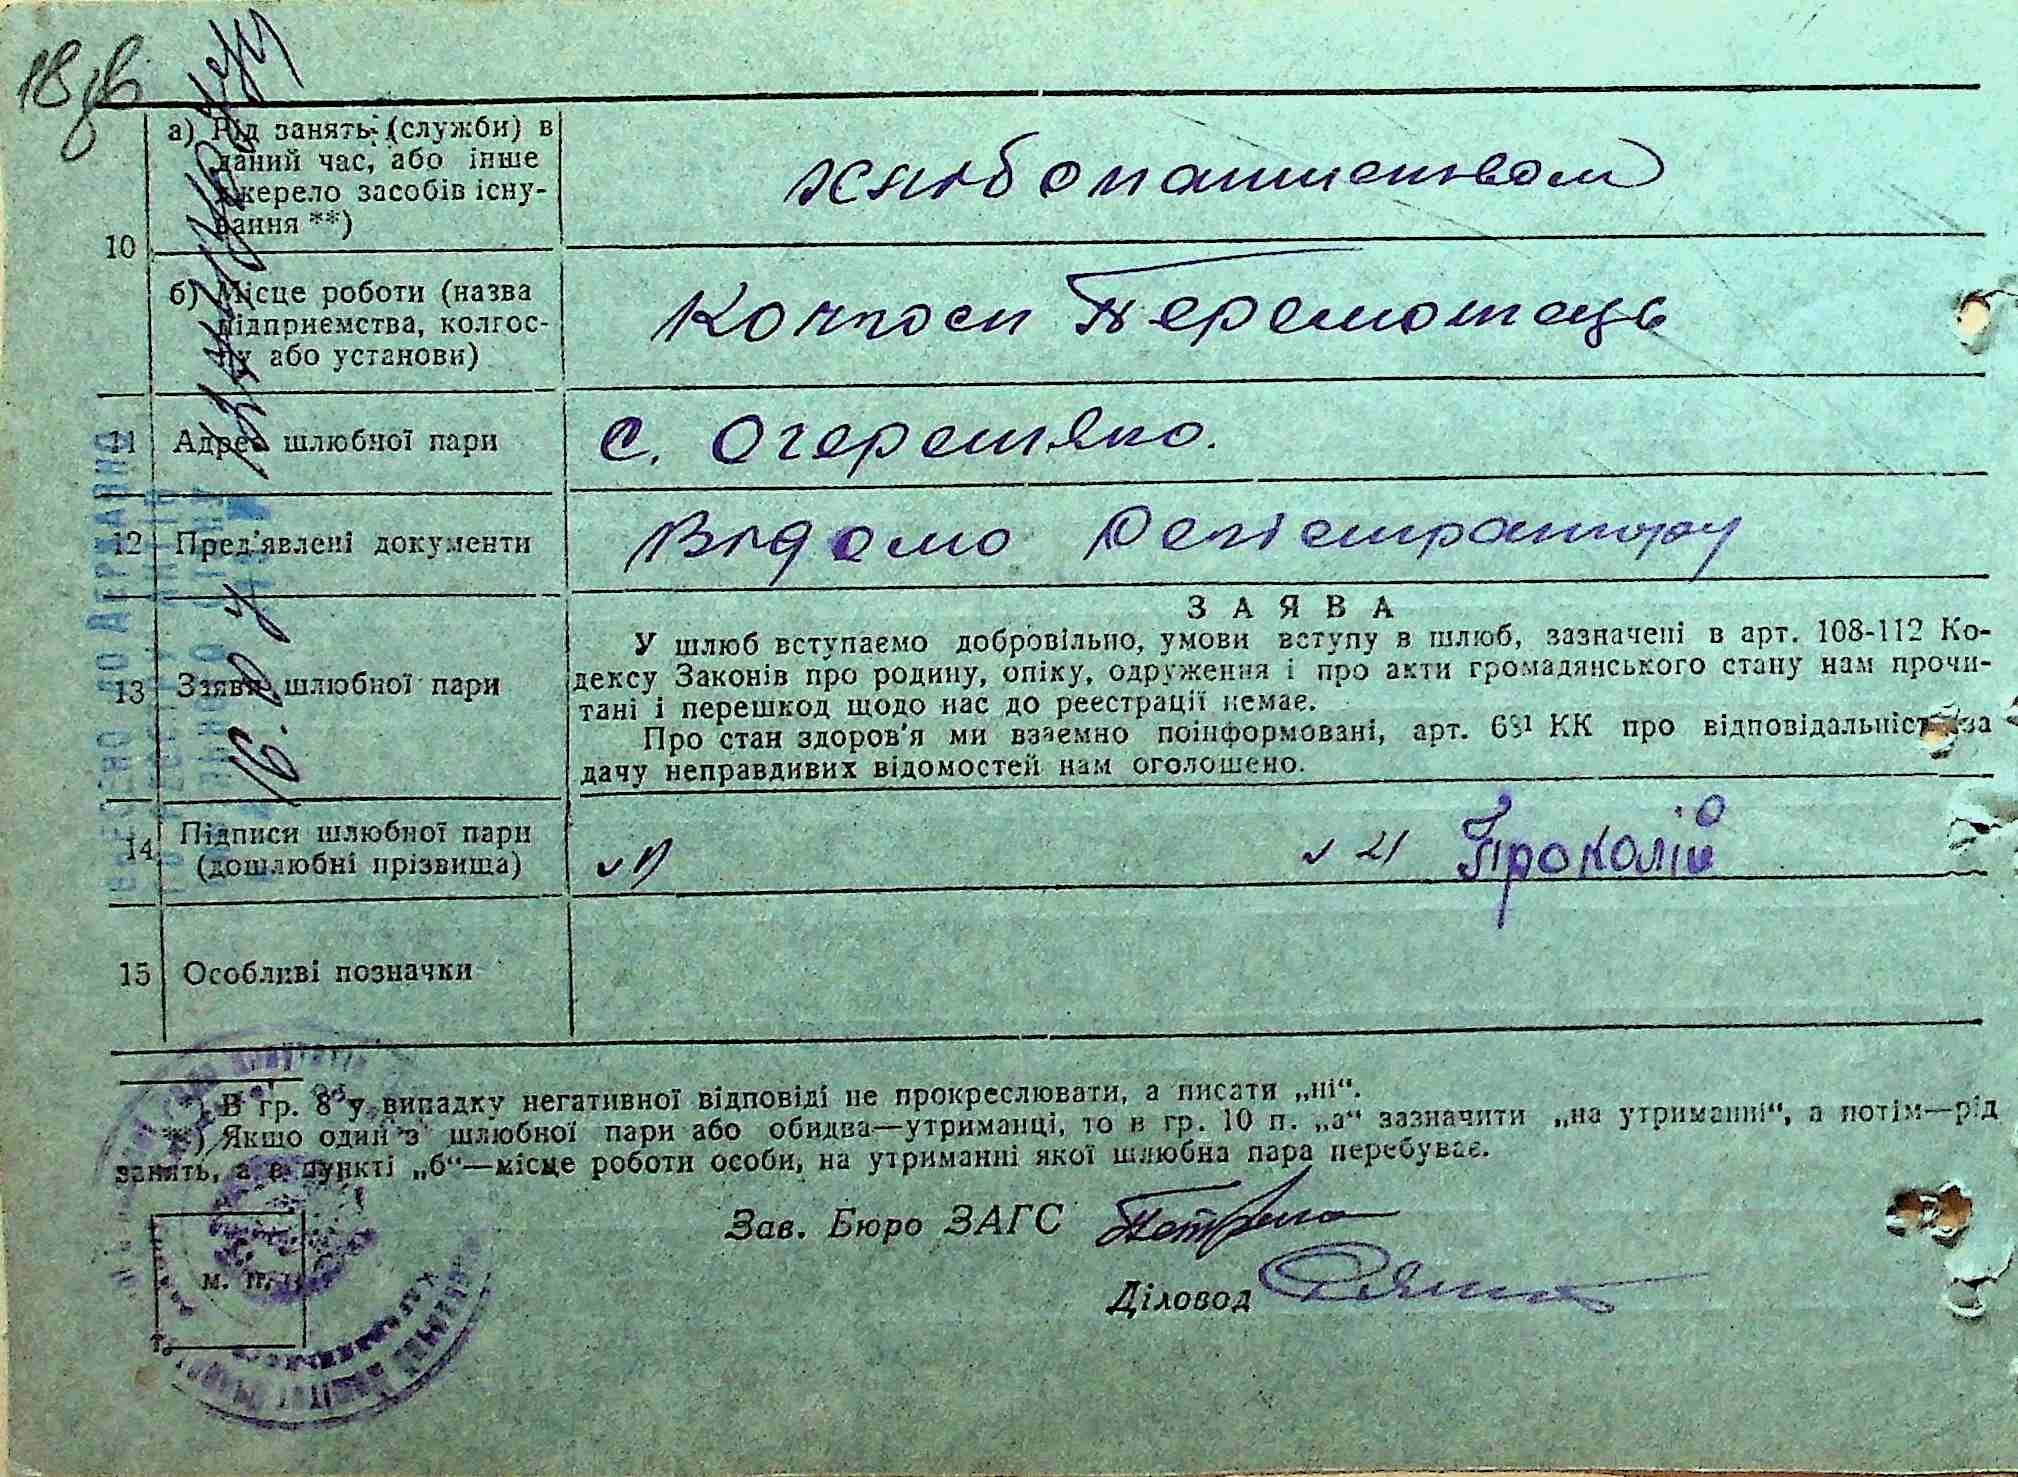 18 зв
10
а) Рід занять (служби) в
даний час, або інше
джерело засобів існу-
вання **)
хлібопашенством
б) Місце роботи (назва
підприємства, колгос-
пу або установи)
Колгосп Переможець
11 Адрес шлюбної пари
с. Очеретяно.
12 Пред'явлені документи
Відомо Регістратору
13 Заява шлюбної пари
ЗАЯВА
У шлюб вступаємо добровільно, умови вступу в шлюб, зазначені в арт. 108-112 Ко-
дексу Законів про родину, опіку, одруження і про акти громадянського стану нам прочи-
тані і перешкод щодо нас до реєстрації немає.
Про стан здоров'я ми взаємно поінформовані, арт. 68¹ КК про відповідальність за
дачу неправдивих відомостей нам оголошено.
14 Підписи шлюбної пари
(дошлюбні прізвища)
Проколій
15 Особливі позначки
*) В гр. 8 у випадку негативної відповіді не прокреслювати, а писати „ні“.
**) Якщо один з шлюбної пари або обидва—утриманці, то в гр. 10 п. „а“ зазначити „на утриманні“, а потім—рід
занять, а в пункті „б“—місце роботи особи, на утриманні якої шлюбна пара перебуває.
Зав. Бюро ЗАГС
Діловод
м. п.